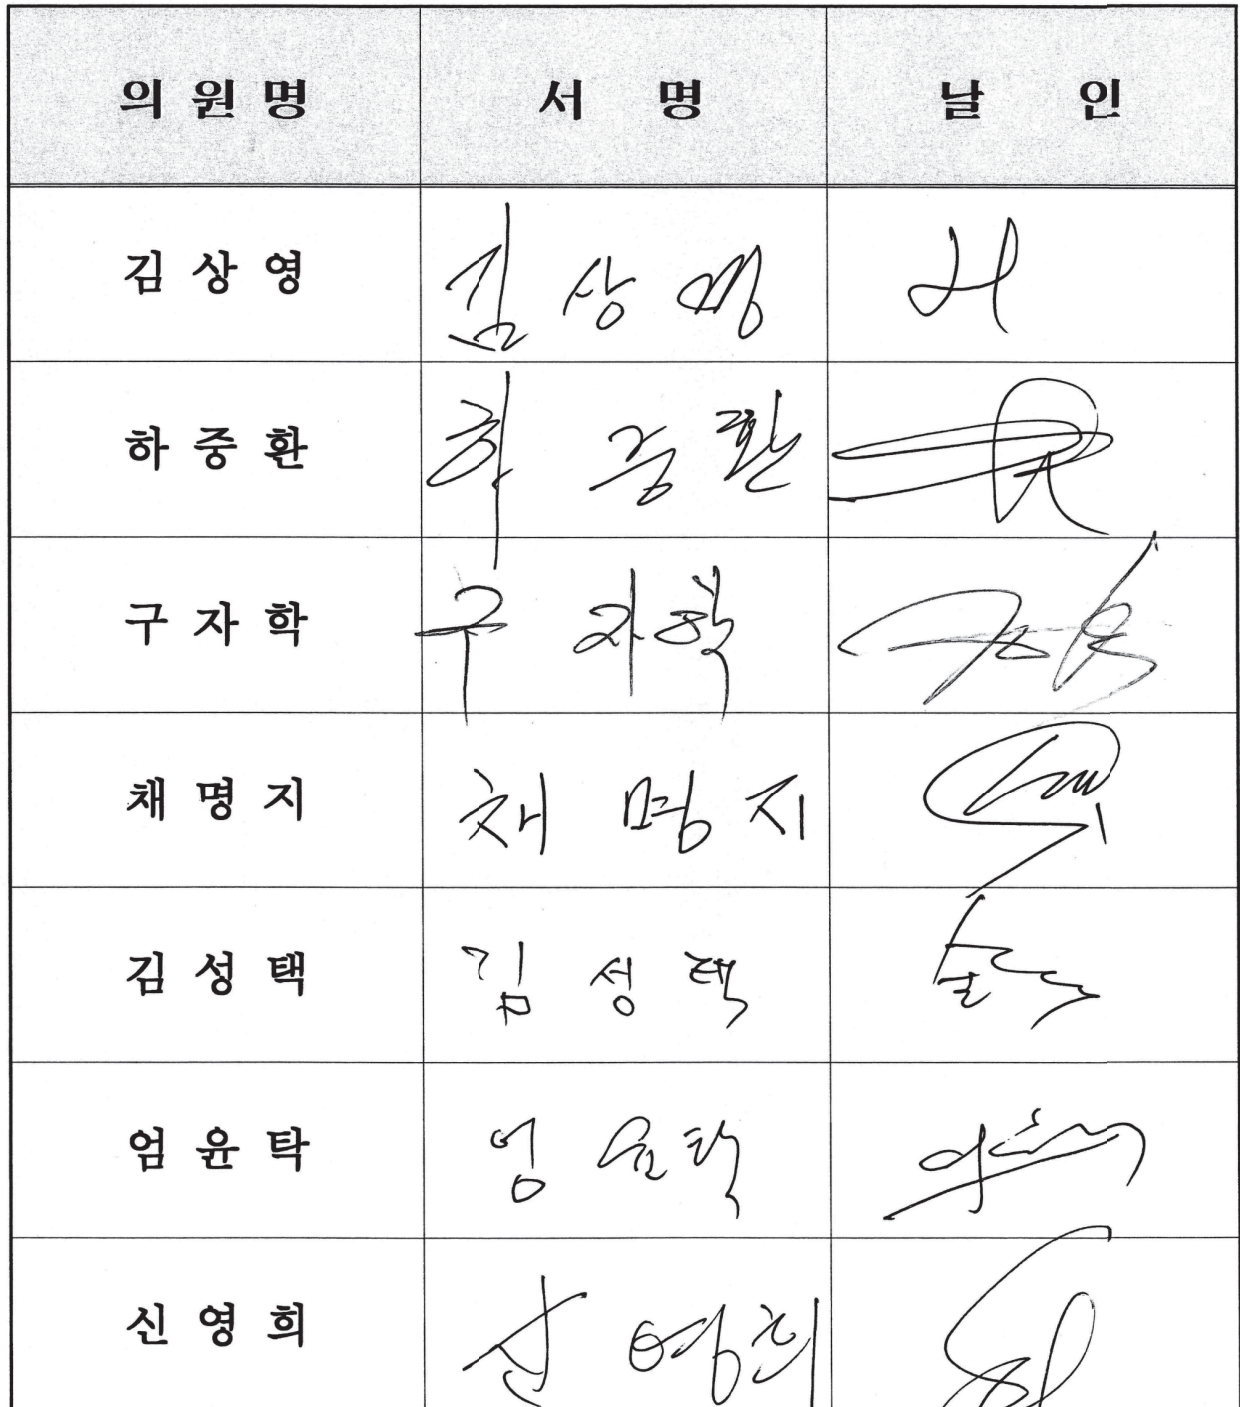 의원명 서 명 날 인
김상영 김상영
하중환 하중환
구자학 구자학
채명지 채명지
김성택 김성택
엄윤탁 엄윤탁
신영희 신영희